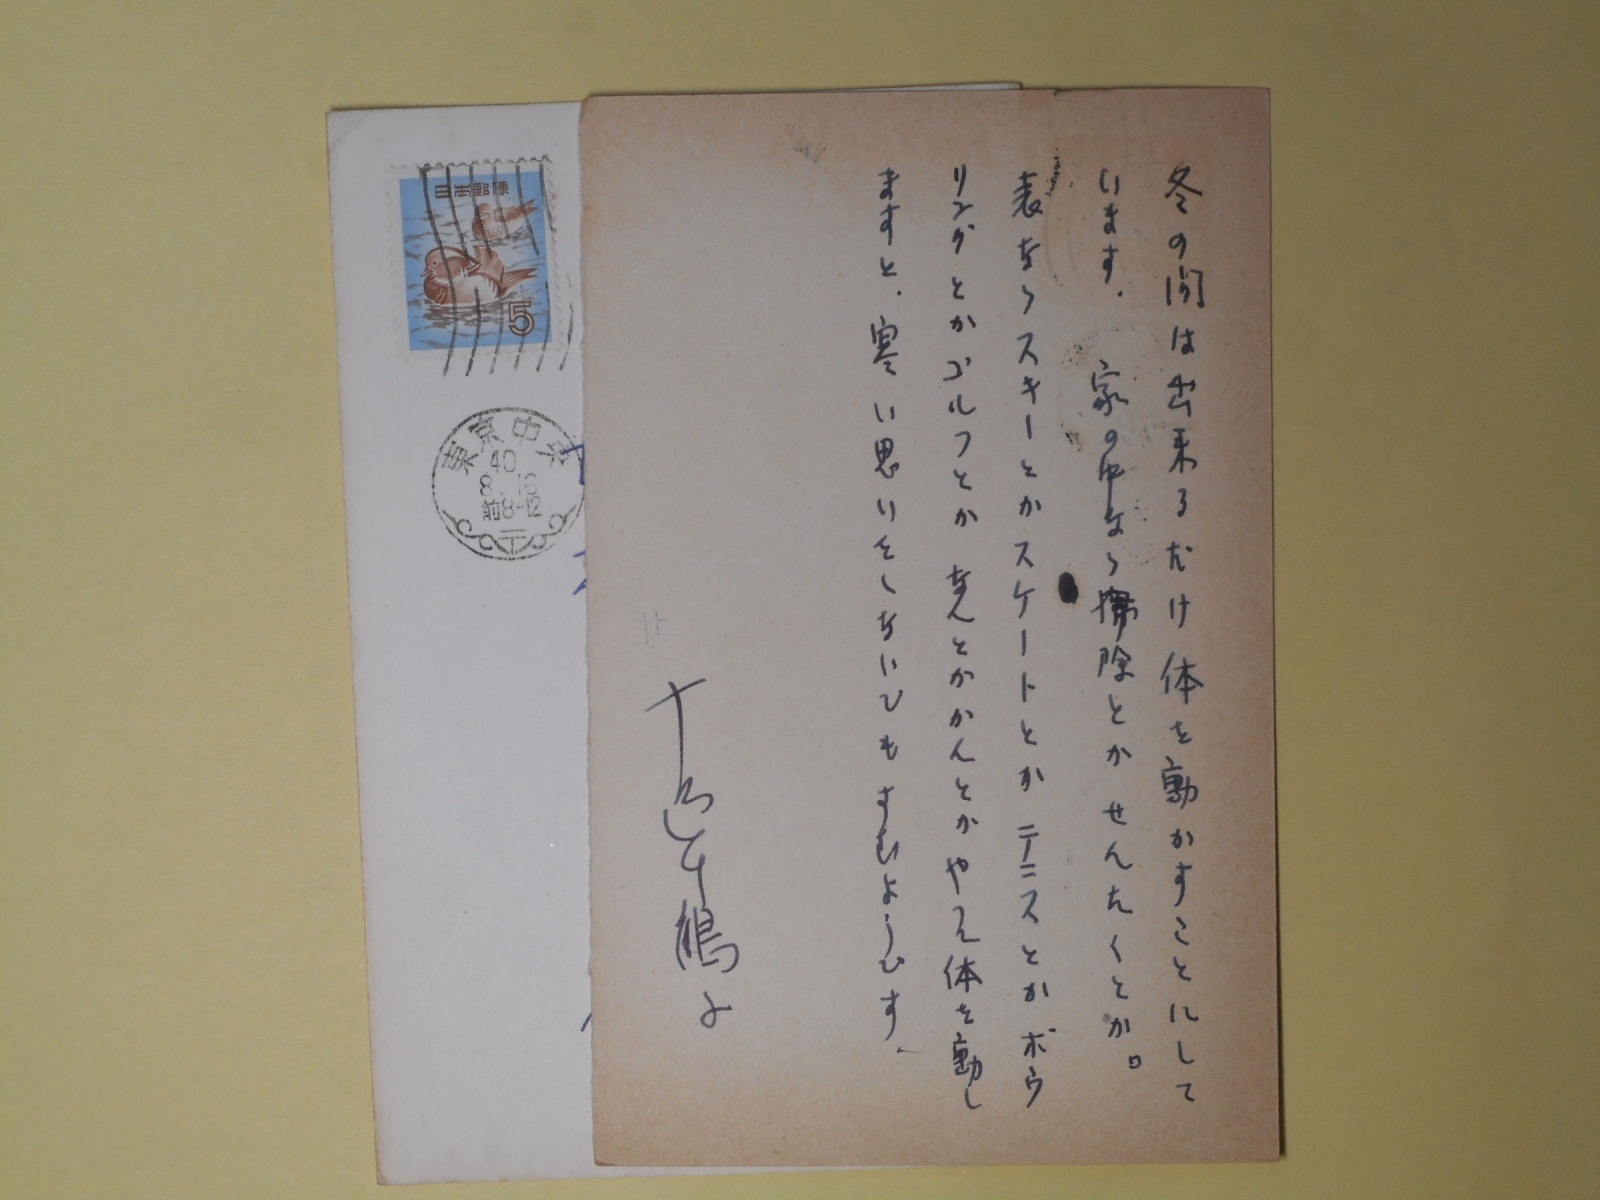 冬の間は出来るだけ体を動かすことにして
います.家の中なら掃除とかせんたくとか。
表ならスキーとかスケートとかテニスとかボウ
リングとかゴルフとかなんとかかんとかやって体を動し
ますと.寒い思いをしないでもすむようです、
十返千鶴子
日本郵便
5
東京中央
40
8.16
前8-12